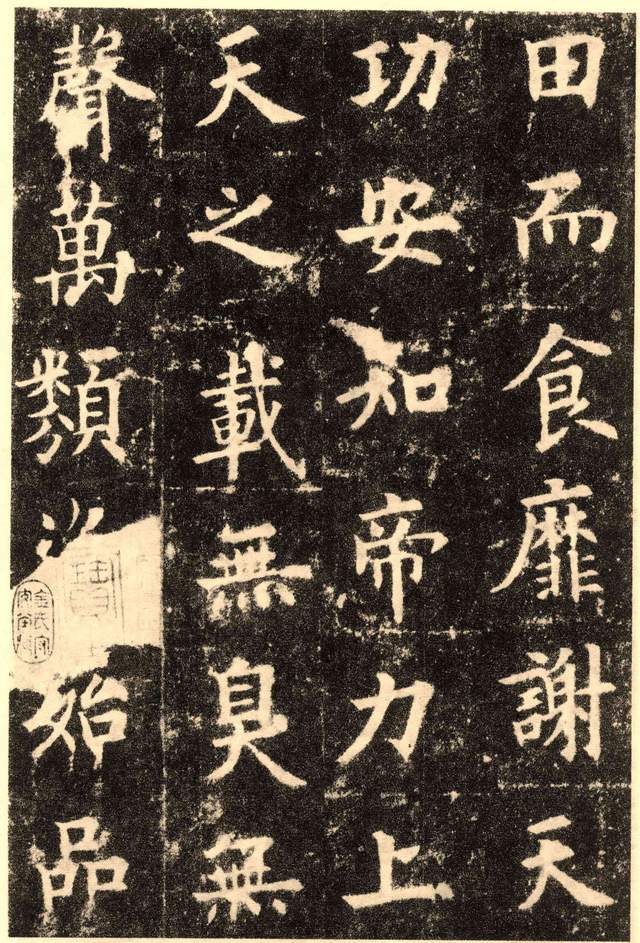 田而食靡謝天
功安知帝力上
天之載無臭無
聲萬類
始品